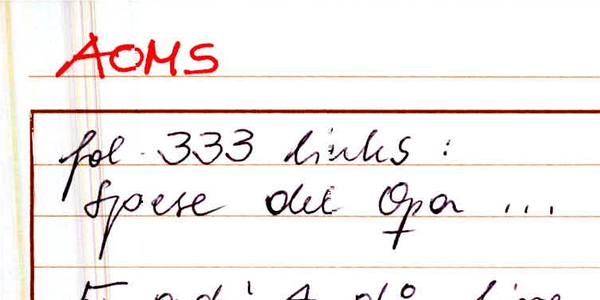 AOMS
fol. 333 links:
Spese del Opa ...